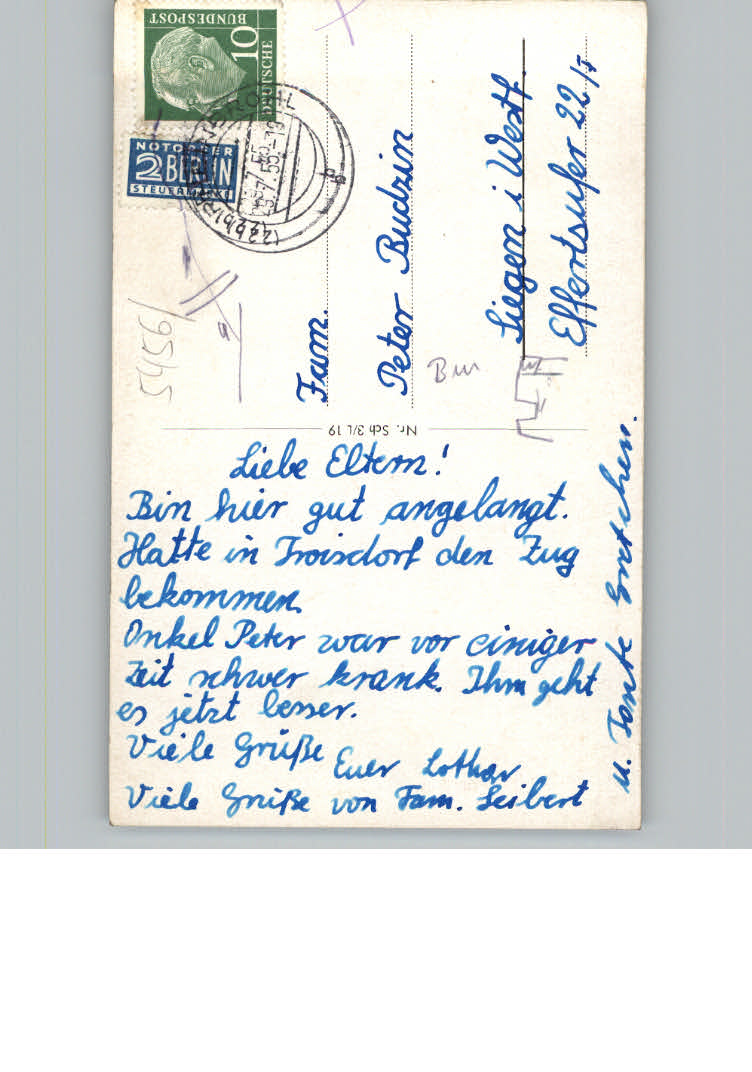 DEUTSCHE
BUNDESPOST
10
NOTOPFER
2 BERLIN
STEUERMARKE
Fam.
Peter Budzin
Siegen i Westf.
Effertsufer 22/I
Bur
54561
Nr. Sch 3/L 19
Liebe Eltern!
Bin hier gut angelangt.
Hatte in Troisdorf den Zug
bekommen.
Onkel Peter war vor einiger
Zeit schwer krank. Ihm geht
es jetzt besser.
Viele Grüße Euer Lothar
Viele Grüße von Fam. Seibert
u. Tante Gretchen.